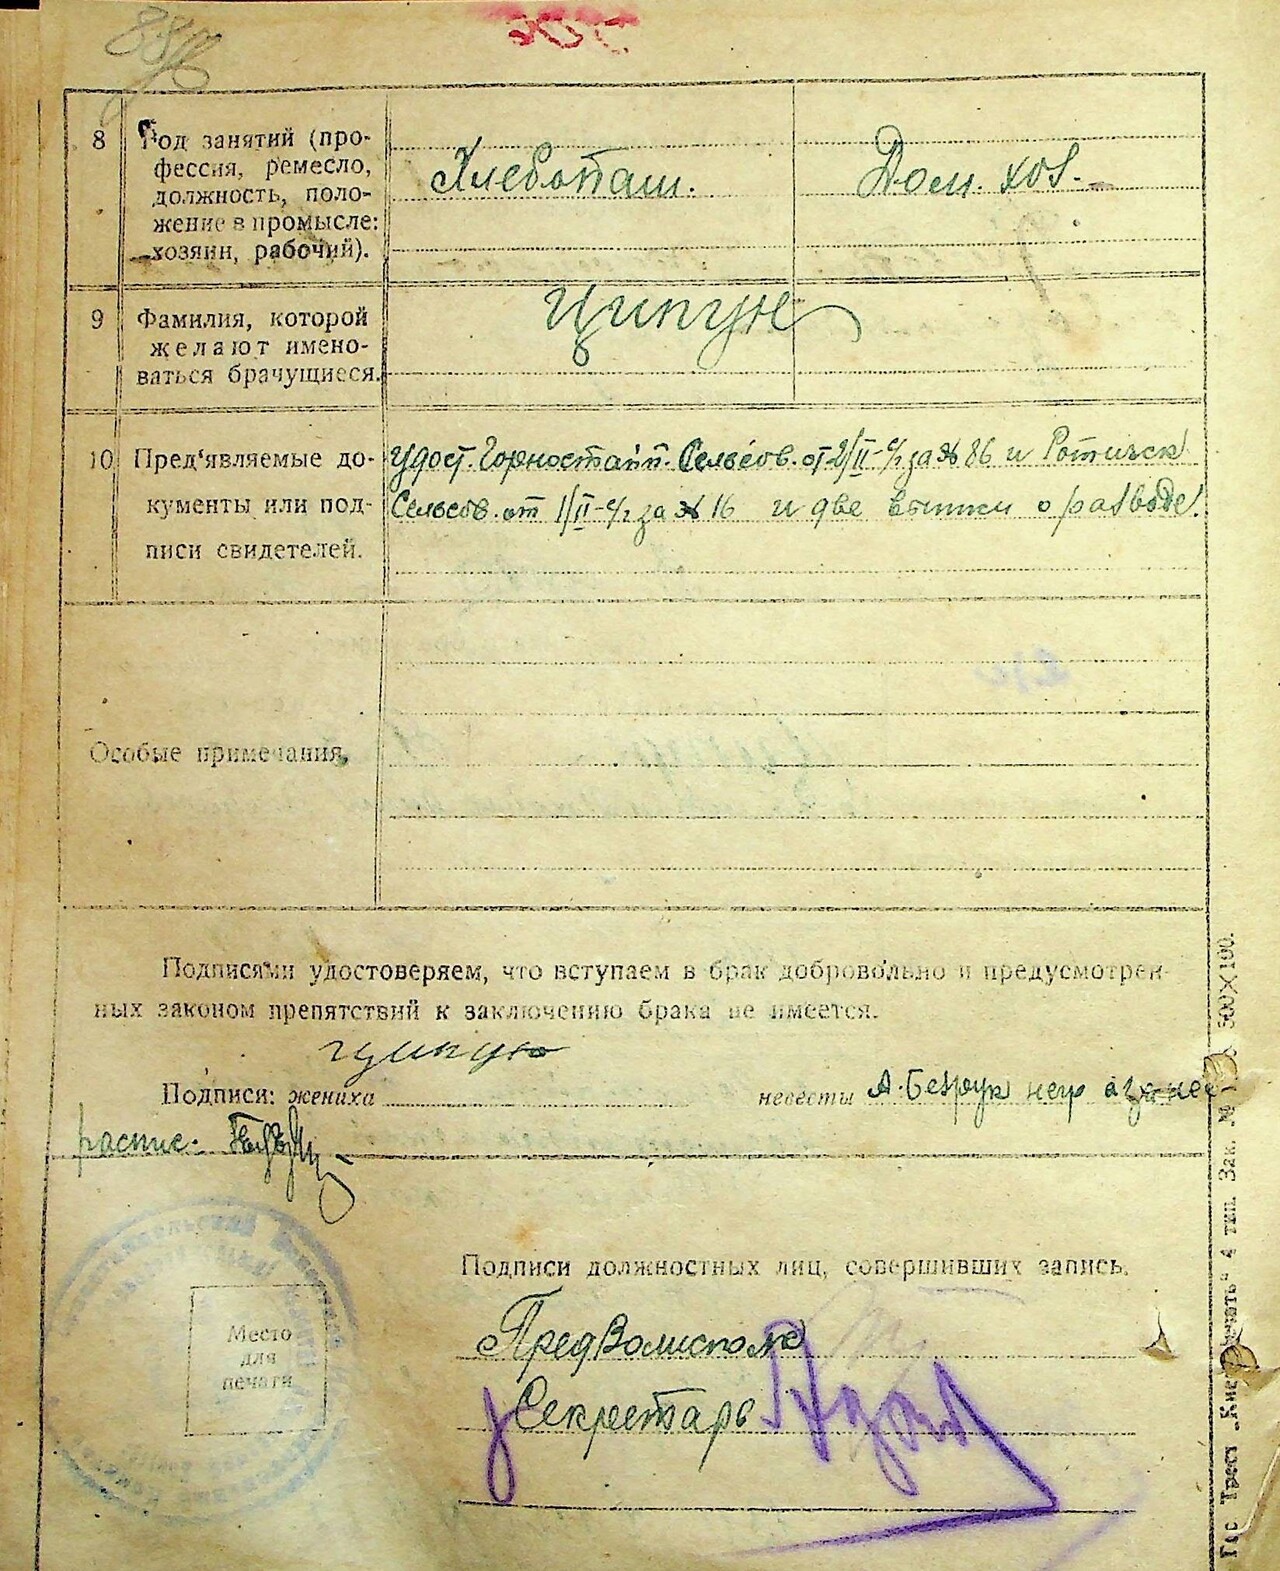 8 Род занятий (про-
фессия, ремесло,
должность, поло-
жение в промысле:
хозяин, рабочий).
Хлебопаш. Дом. хоз.
9 Фамилия, которой
желают имено-
ваться брачущиеся.
Ципун
10 Пред'являемые до-
кументы или под-
писи свидетелей.
Удост. Горностайп. Сельсов. от 2/II-с/г за № 86 и Ротичск
Сельсов. от 1/II-с/г за № 16 и две выписи о разводе.
Особые примечания.
Подписями удостоверяем, что вступаем в брак добровольно и предусмотрен-
ных законом препятствий к заключению брака не имеется.
Ципун
Подписи: жениха невесты А. Безрук негр а за нее
распис.
Подписи должностных лиц, совершивших запись.
Место
для
печати
ПредВолисполк
Секретарь
Гос Трест „Киев-Печать“ 4 тип. Зак. № 500X100.